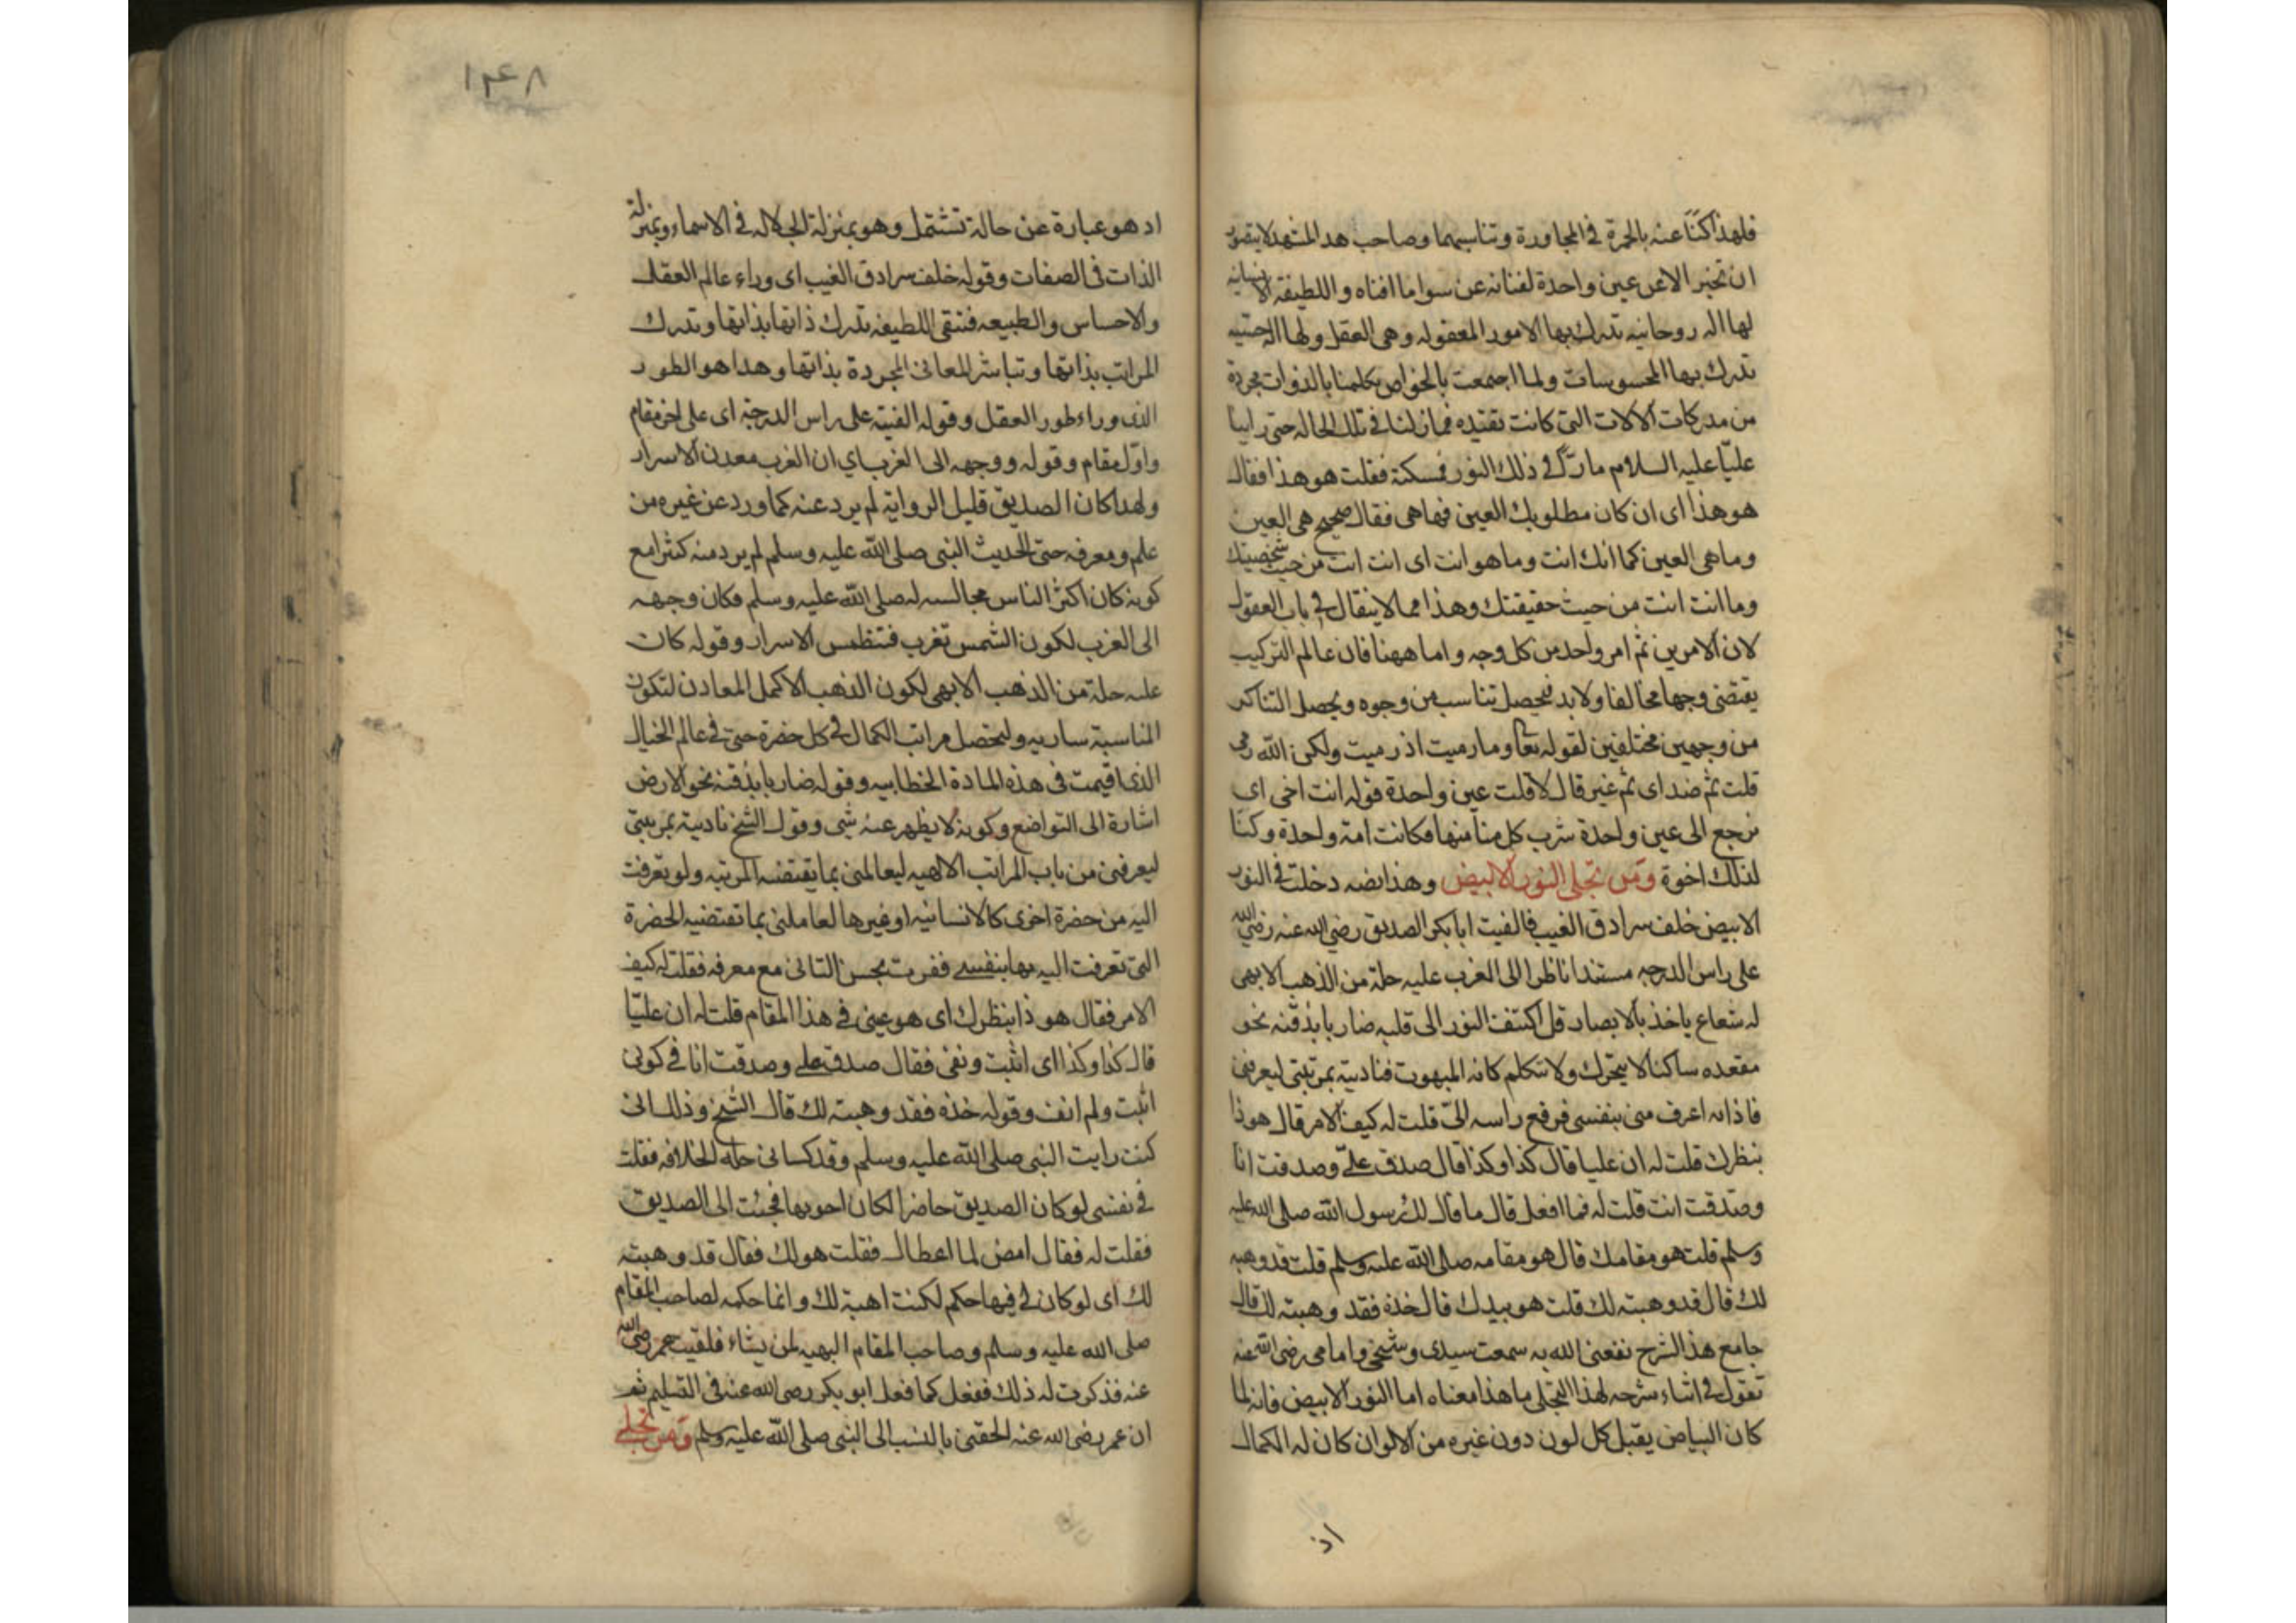 فلهذا كنّا عنه بالحمرة في المجاورة وتناسبهما وصاحب هدا المشهد لا يتصور
ان تخبر الا عن عين واحدة لفنائه عن سوا ما افناه واللطيفة الانسانيه
لها اله روحانيه تدرك بها الامور المعقوله وهى العقل ولها اله حسيه
تدرك بها المحسوسات ولما اجتمعت بالخواص تكلمنا بالذوات مجردة
من مدركات الالات التى كانت تقيده فما زلنا في تلك الحاله حتى راينا
عليّا عليه السلام مارّا في ذلك النور فمسكته فقلت هو هذا فقال
هو هذا اى ان كان مطلوبك العين فها هى فقال صحيح هى العين
وما هى العين كما انك انت وما هو انت اى انت انت من حيث شخصيتك
وما انت انت من حيث حقيقتك وهذا مما لا ينقال في باب العقول
لان الامرين ثم امر واحد من كل وجه واما ههنا فان عالم التركيب
يقتضى وجها مخالفا ولا بد فيحصل تناسب من وجوه ويحصل التناكر
من وجهين مختلفين لقوله تعا وما رميت اذ رميت ولكن الله رمى
قلت ثم ضد اى ثم غير قال لا قلت عين واحدة قوله انت اخى اى
نرجع الى عين واحدة شرب كل منا منها فكانت امة واحدة وكنّا
لذلك اخوة ومن تجلى النور الابيض وهذا نصه دخلت في النور
الابيض خلف سرادق الغيب فالفيت ابا بكر الصديق رضي الله عنه رضي الله
على راس الدرجه مستندا ناظرا الى الغرب عليه حلة من الذهب الابهى
له شعاع ياخذ بالابصار قد اكتنف النور الى قلبه ضاربا بذقنه نحو
مقعده ساكنا لا يتحرك ولا يتكلم كانه المبهوت فناديته بمرتبتى ليعرفنى
فاذا به اعرف منى بنفسى فرفع راسه الىّ قلت له كيف الامر قال هو ذا
بنظرك قلت له ان عليا قال كذا وكذا قال صدق علىّ وصدقت انا
وصدقت انت قلت له فما افعل قال ما قال لك رسول الله صلى الله عليه
وسلم قلت هو مقامك قال هو مقامه صلى الله عليه وسلم قلت قد وهبه
لك قال قد وهبته لك قلت هو بيدك قال خذه فقد وهبته لك قال
جامع هذا الشرح نفعنى الله به سمعت سيدى وشيخى وامامى رضى الله عنه
تقول في اثناء شرحه لهذا التجلى ما هذا معناه اما النور الابيض فانه لما
كان البياض يقبل كل لون دون غيره من الالوان كان له الكمال
اذ
١٤٨
اد هو عبارة عن حالة تشتمل وهو بمنزلة الجلاله في الاسماء وبمنزلة
الذات فى الصفات وقوله خلف سرادق الغيب اى وراء عالم العقل
والاحساس والطبيعه فتبقى اللطيفه تدرك ذاتها بذاتها وتدرك
المراتب بذاتها وتباشر المعانى المجردة بذاتها وهدا هو الطور
الذى وراء طور العقل وقوله الفيته على راس الدرجة اى على اخر مقام
واوّل مقام وقوله ووجهه الى الغرب اي ان الغرب معدن الاسرار
ولهدا كان الصديق قليل الرواية لم يرد عنه كما ورد عن غيره من
علم ومعرفه حتى الحديث النبى صلى الله عليه وسلم لم يرد منه كثرا مع
كونه كان اكثر الناس مجالسه له صلى الله عليه وسلم فكان وجهه
الى الغرب لكون الشمس تغرب فتنطمس الاسرار وقوله كان
عليه حلة من الذهب الابهى لكون الذهب الاكمل المعادن لتكون
المناسبة ساريه وليحصل مراتب الكمال في كل حضرة حتى في عالم الخيال
الذى اقيمت فى هذه المادة الخطابيه وقوله ضاربا بذقنه نحو الارض
اشارة الى التواضع وكونه لا يظهر عنه شى وقول الشيخ ناديته بمرتبتى
ليعرفنى من باب المراتب الالهيه ليعاملنى بما يقتضيه المرتبه ولو تعرفت
اليه من حضرة اخرى كالانسانيه او غيرها لعاملنى بما تقتضيه الحضرة
التى تعرفت اليه بها بنفسى ففريت بحسن التانى مع معرفه فقلت له كيف
الامر فقال هو ذا بنظرك اى هو عينى في هذا المقام قلت له ان عليّا
قال كذا وكذا اى اثبت ونفى فقال صدق على وصدقت انا في كونى
اثبت ولم انف وقوله خذه فقد وهبته لك قال الشيخ وذلك انى
كنت رايت النبى صلى الله عليه وسلم وقد كسانى حلة الخلافه فقلت
في نفسى لو كان الصديق حاضرا لكان احق بها فجئت الى الصديق
فقلت له فقال امض لما اعطاك فقلت هو لك فقال قد وهبته
لك اى لو كان لى فيها حكم لكنت اهبة لك وانما حكمه لصاحب المقام
صلى الله عليه وسلم وصاحب المقام البهيه لمن يشاء فلقيت عمر رضى الله
عنه فذكرت له ذلك ففعل كما فعل ابو بكر رصى الله عنه فى التسليم ثم
ان عمر رضى الله عنه الحقنى بالنسب الى النبى صلى الله عليه وسلم ومن تجلى